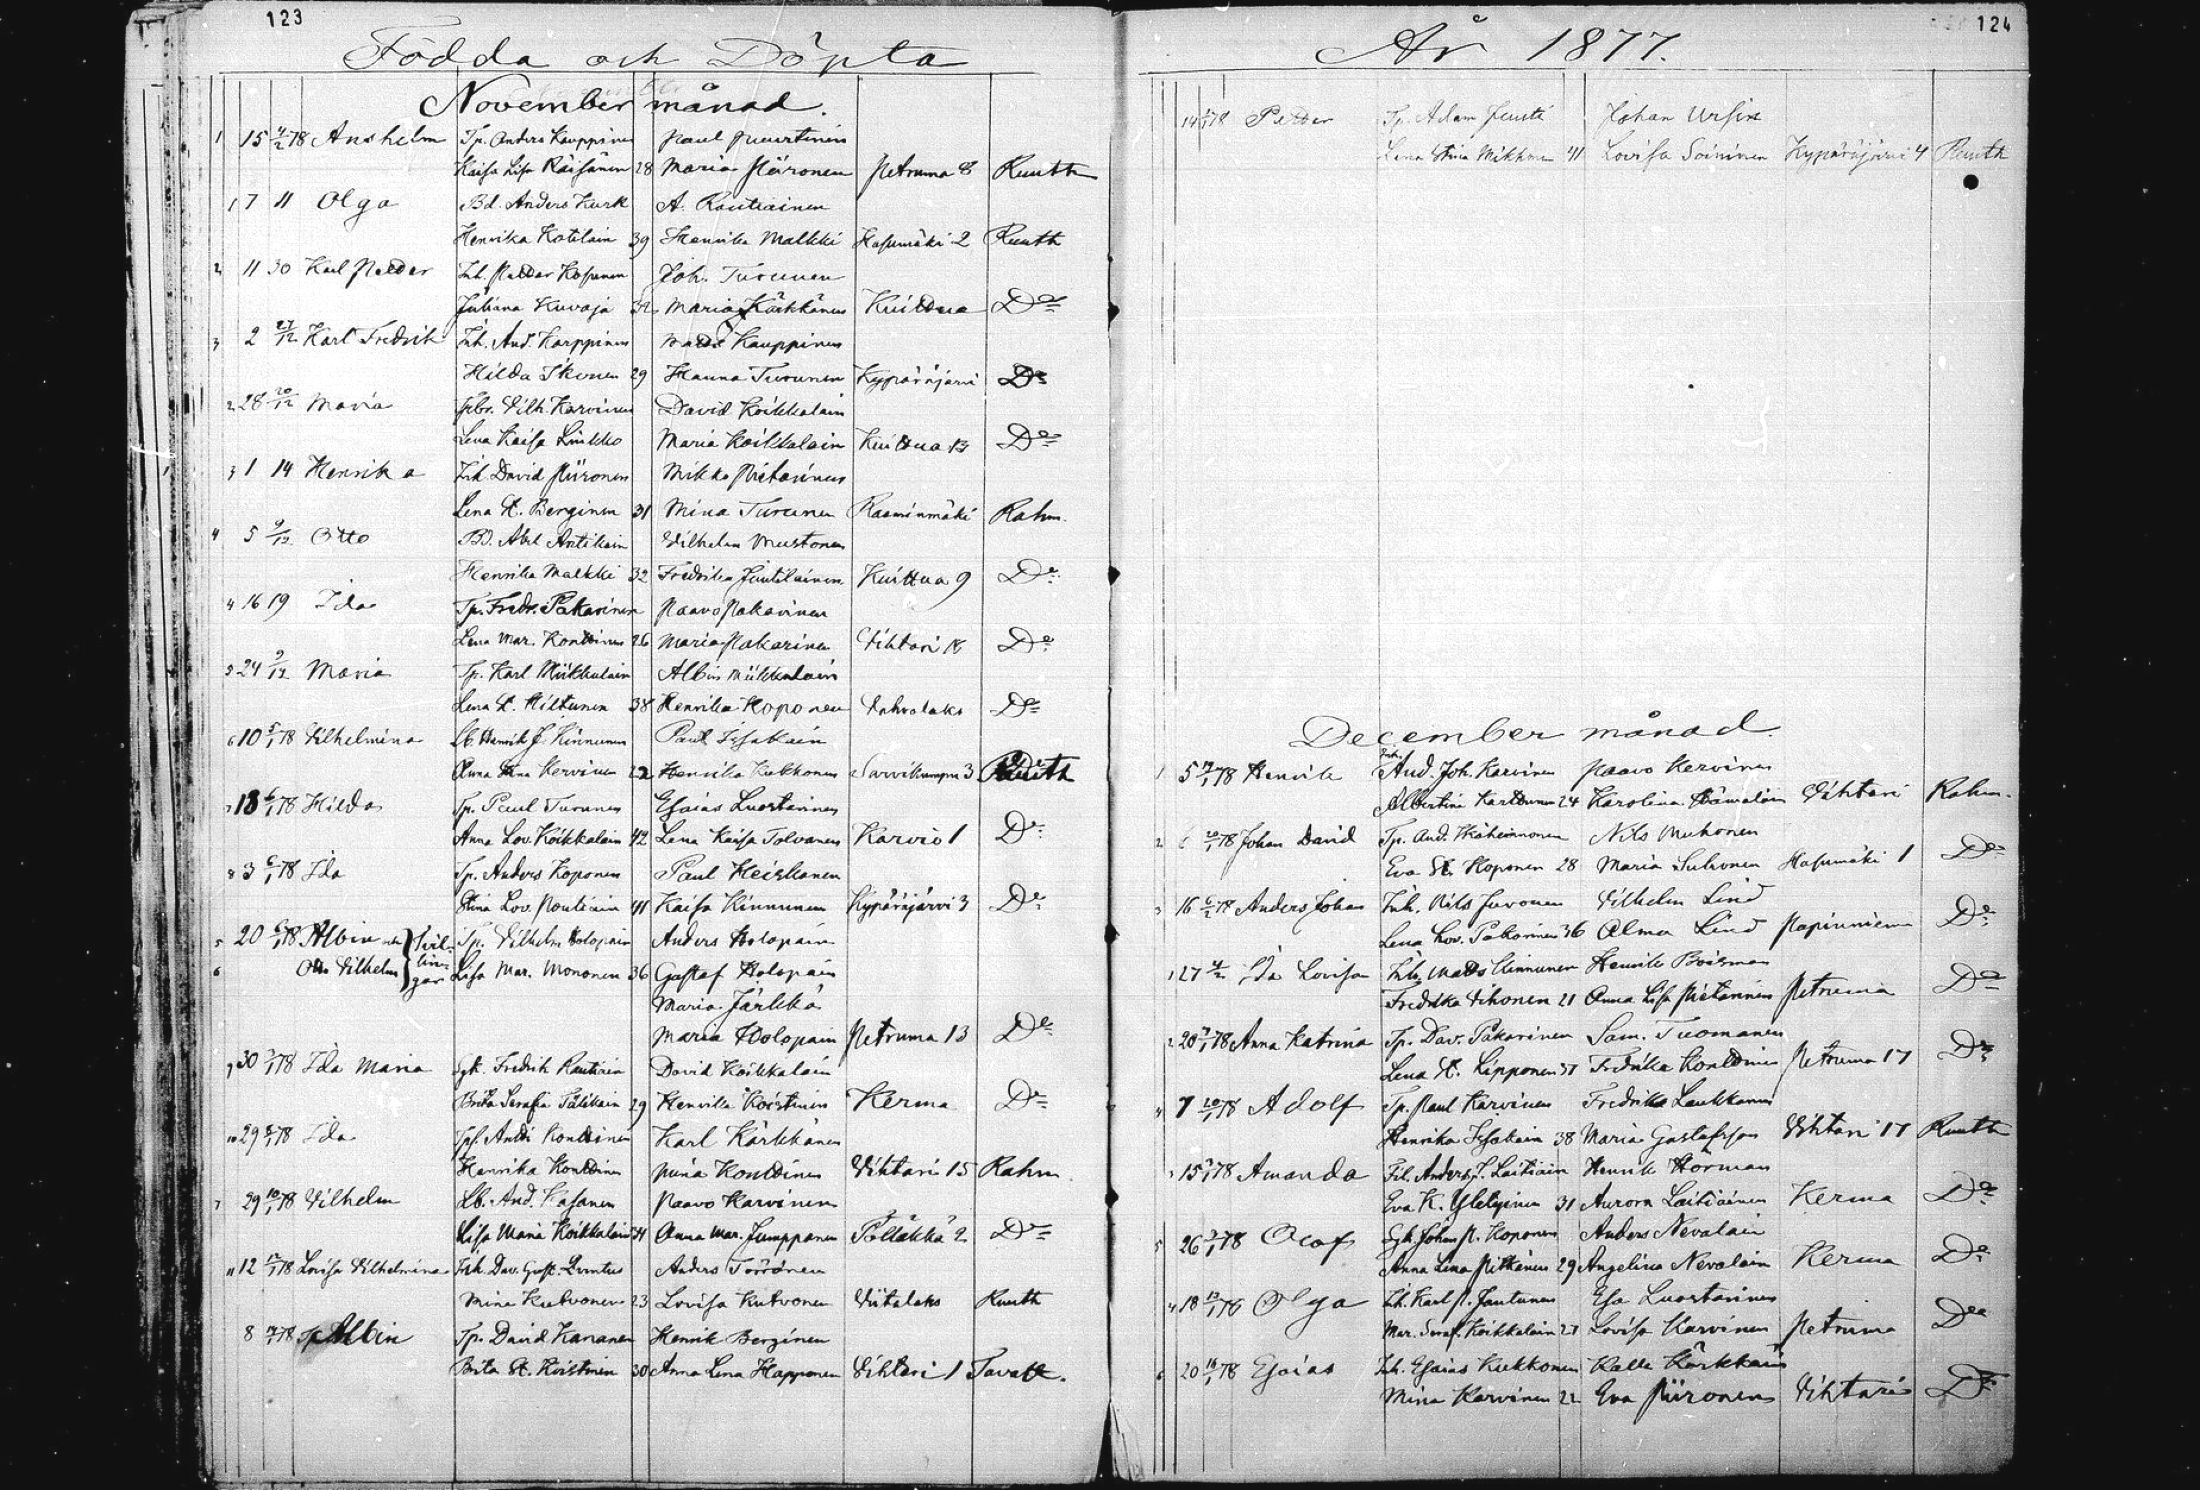 123
Födda och Döpta
November månad.
1 15 4/2 78 Anshelm Tp. Anders Kauppinen Paul
Kaisa Lisa Räisänen 28 Maria Piironen Petruma 8 Ruuth
1 7 11 Olga Bd. Anders Kurk A. Rautiainen
Henrika Kotilain 39 Henrika Malkki Hasumäki 2 Ruuth
2 11 30 Karl Petter Inh. Petter Kosunen Joh. Turunen
Juliana Kuvaja 32 Maria Kärkkänen Kuittua Do
3 2 27/12 Karl Fredrik Inh. And. Karppinen Matts Kauppinen
Hilda Ikonen 29 Hanna Turunen Kypäräjärvi Do
2 28 20/12 Maria Vilh. Karvinen David Koikkalain
Lena Kaisa Linkko Maria Koikkalain Kuittua 13 Do
3 1 14 Henrika Inh David Piironen Mikko Pietarinen
Lena K. Berginen 31 Mina Turunen Raaminmäki Rahm.
4 5 9/12 Otto Bd. Abel Antikain Vilhelm Mustonen
Henrika Malkki 32 Fredrika Juutilainen Kuittua 9 Do
4 16 19 Ida Tp. Fredr. Pakarinen Paavo Pakarinen
Lena Mar. Konttinen 26 Maria Pakarinen Vihtari 18 Do
5 24 9/12 Maria Tp. Karl Miikkulain Albin Miikkulain
Lena K. Hiltunen 38 Henrika Koponen Vahvalaks Do
6 10 5/1 78 Vilhelmina Lb. Henrik J. Kinnunen Paul Issakain
Anna Stina Kervinen 22 Henrika Kukkonen Sarvikumpu 3 Ruuth
7 18 6/1 78 Hilda Tp. Paul Turunen Esaias Luostarinen
Anna Lov. Koikkalain 42 Lena Kaisa Tolvanen Karvio 1 Do
8 3 6/1 78 Ida Tp. Anders Koponen Paul Heiskanen
Stina Lov. Rautiain 41 Kaisa Kinnunen Kypäräjärvi 3 Do
5 20 6/1 78 Albin och Tvil- Tp. Vilhelm Holopain Anders Holopain
6 Otto Vilhelm lin- gar Lisa Mar. Mononen 36 Gustaf Holopain
Maria Järkkä
Maria Holopain Petruma 13 Do
9 30 7/1 78 Ida Maria Sgk. Fredrik Rautiain David Koikkalain
Brita Serafia Pålikain 29 Henrika Koistinen Kerma Do
10 29 8/1 78 Ida Antti Konttinen Karl Kärkkänen
Henrika Konttinen Mina Konttinen Vihtari 15 Rahm.
7 29 10/1 78 Vilhelm Lb. And. Kasanen Paavo Karvinen
Lisa Maria Koikkalain 34 Anna Mar. Jumppanen Pölläkkä 2 Do
11 12 12/1 78 Lovisa Vilhelmina Inh. Dav. Gust. Qvintus Anders Törrönen
Mina Kutvonen 23 Lovisa Kutvonen Viitalaks Ruuth
8 14/1 78 Albin Tp. David Kananen Henrik Berginen
Brita K. Koistinen 30 Anna Lena Happonen Vihtari 1 Tavatt.
124
År 1877.
14 78 Petter Tp. Adam Juuti Johan Ursin
Lena Stina Mikkonen 41 Lovisa Soininen Kypäräjärvi 4 Ruuth
December månad.
1 5 12/1 78 Henrik And. Joh. Karvinen Paavo Kervinen
Albertina Karttunen 24 Karolina Hämäläin Vihtari Rahm.
2 6 20/1 78 Johan David Tp. And. Wäheinonen Nils Muhonen
Eva K. Koponen 28 Maria Suhonen Hasumäki 1 Do
3 16 6/2 78 Anders Johan Inh. Nils Juvonen Vilhelm Lind
Lena Lov. Pakarinen 36 Alma Lind Papinniem Do
1 27 4/2 Ida Lovisa Inh. Matts Kinnunen Henrik Boisman
Fredrika Vihonen 21 Anna Lisa Pietarinen Petruma Do
2 20 7/1 78 Anna Katrina Tp. Dav. Pakarinen Sam. Tuomanen
Lena K. Lipponen 37 Fredrika Konttinen Petruma 17 Do
4 7 20/1 78 Adolf Tp. Paul Karvinen Fredrik Laukkanen
Henrika Issakain 38 Maria Gustafsson Vihtari 17 Ruuth
3 15 3/1 78 Amanda Anders J. Laitiain Henrik Hörman
Eva K. Yletyinen 31 Aurora Laitiainen Kerma Do
5 26 3/1 78 Olof Sgk. Johan P. Koponen Anders Nevalain
Anna Lena Pitkänen 29 Angelina Nevalain Kerma Do
4 18 13/1 78 Olga Inh. Karl P. Jantunen Esa Luostarinen
Mar. Seraf. Koikkalain 27 Lovisa Karvinen Petruma Do
6 20 16/1 78 Esaias Inh. Esaias Kukkonen Kalle Kärkkäin
Mina Karvinen 22 Eva Piironen Vihtari Do